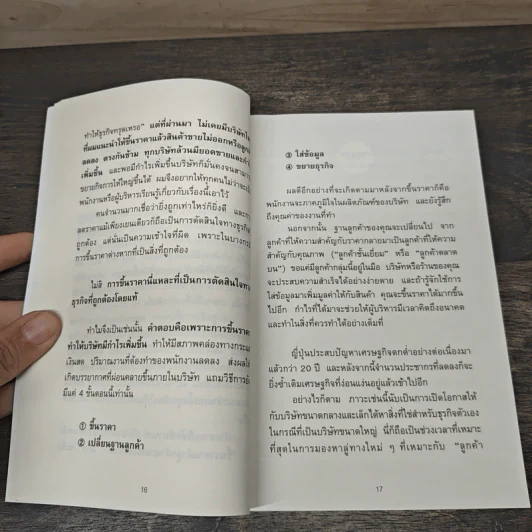 ทำให้ธุรกิจทรุดเหรอ" แต่ที่ผ่านมา ไม่เคยมีบริษัท
ที่ผมแนะนำให้ขึ้นราคาแล้วสินค้าขายไม่ออกหรือลูกค้า
ลดลง ตรงกันข้าม ทุกบริษัทล้วนมียอดขายและ
เพิ่มขึ้น และพอมีกำไรเพิ่มขึ้นบริษัทก็มั่นคงจน
ขยายกิจการให้ใหญ่ขึ้นได้ ผมจึงอยากให้ทุกคนไม่ว่า
พนักงานหรือผู้บริหารเรียนรู้เกี่ยวกับเรื่องนี้เอาไว้
คนจำนวนมากเชื่อว่ายิ่งถูกเท่าไหร่ก็ยิ่งดี และ
ลดราคาแม้เพียงเยนเดียวก็ถือเป็นการตัดสินใจทางธุรกิจ
ถูกต้อง แต่นั่นเป็นความเข้าใจที่ผิด เพราะในบาง
การขึ้นราคาต่างหากที่เป็นสิ่งที่ถูกต้อง
ไม่สิ การขึ้นราคานี่แหละที่เป็นการตัดสินใจทาง
ธุรกิจที่ถูกต้องโดยแท้
ทำไมจึงเป็นเช่นนั้น คำตอบคือเพราะการขึ้นราคา
ทำให้บริษัทมีกำไรเพิ่มขึ้น ทำให้มีสภาพคล่องทางการ
เงินสด ปริมาณงานที่ต้องทำของพนักงานลดลง ส่งผลให้
เกิดบรรยากาศที่ผ่อนคลายขึ้นภายในบริษัท แถมวิธีการยัง
มีแค่ 4 ขั้นตอนนี้เท่านั้น
① ขึ้นราคา
② เปลี่ยนฐานลูกค้า
16
③ ใส่ข้อมูล
④ ขยายธุรกิจ
ผลดีอีกอย่างที่จะเกิดตามมาหลังจากขึ้นราคาก็คือ
พนักงานจะภาคภูมิใจในผลิตภัณฑ์ของบริษัท และยังรู้สึก
ถึงคุณค่าของงานที่ทำ
นอกจากนั้น ฐานลูกค้าของคุณจะเปลี่ยนไป จาก
ลูกค้าที่ให้ความสำคัญกับราคากลายมาเป็นลูกค้าที่ให้ความ
สำคัญกับคุณภาพ ("ลูกค้าชั้นเยี่ยม" หรือ "ลูกค้าตลาด
บน") ขอแค่มีลูกค้ากลุ่มนี้อยู่ในมือ บริษัทหรือร้านของคุณ
จะประสบความสำเร็จได้อย่างง่ายดาย และถ้ารู้จักใช้การ
ใส่ข้อมูลมาเพิ่มมูลค่าให้กับสินค้า คุณจะขึ้นราคาได้มากขึ้น
ไปอีก กำไรที่ได้มาจะช่วยให้ผู้บริหารมีเวลาคิดถึงอนาคต
และทำในสิ่งที่ควรทำได้อย่างเต็มที่
ญี่ปุ่นประสบปัญหาเศรษฐกิจตกต่ำอย่างต่อเนื่องมา
แล้วกว่า 20 ปี และหลังจากนี้จำนวนประชากรที่ลดลงก็จะ
ยิ่งซ้ำเติมเศรษฐกิจที่ง่อนแง่นอยู่แล้วเข้าไปอีก
อย่างไรก็ตาม ภาวะเช่นนี้นับเป็นการเปิดโอกาสให้
กับบริษัทขนาดกลางและเล็กได้หาสิ่งที่ใช่สำหรับธุรกิจตัวเอง
ในกรณีที่เป็นบริษัทขนาดใหญ่ นี่ก็ถือเป็นช่วงเวลาที่เหมาะ
ที่สุดในการมองหาลู่ทางใหม่ ๆ ที่เหมาะกับ "ลูกค้า
17